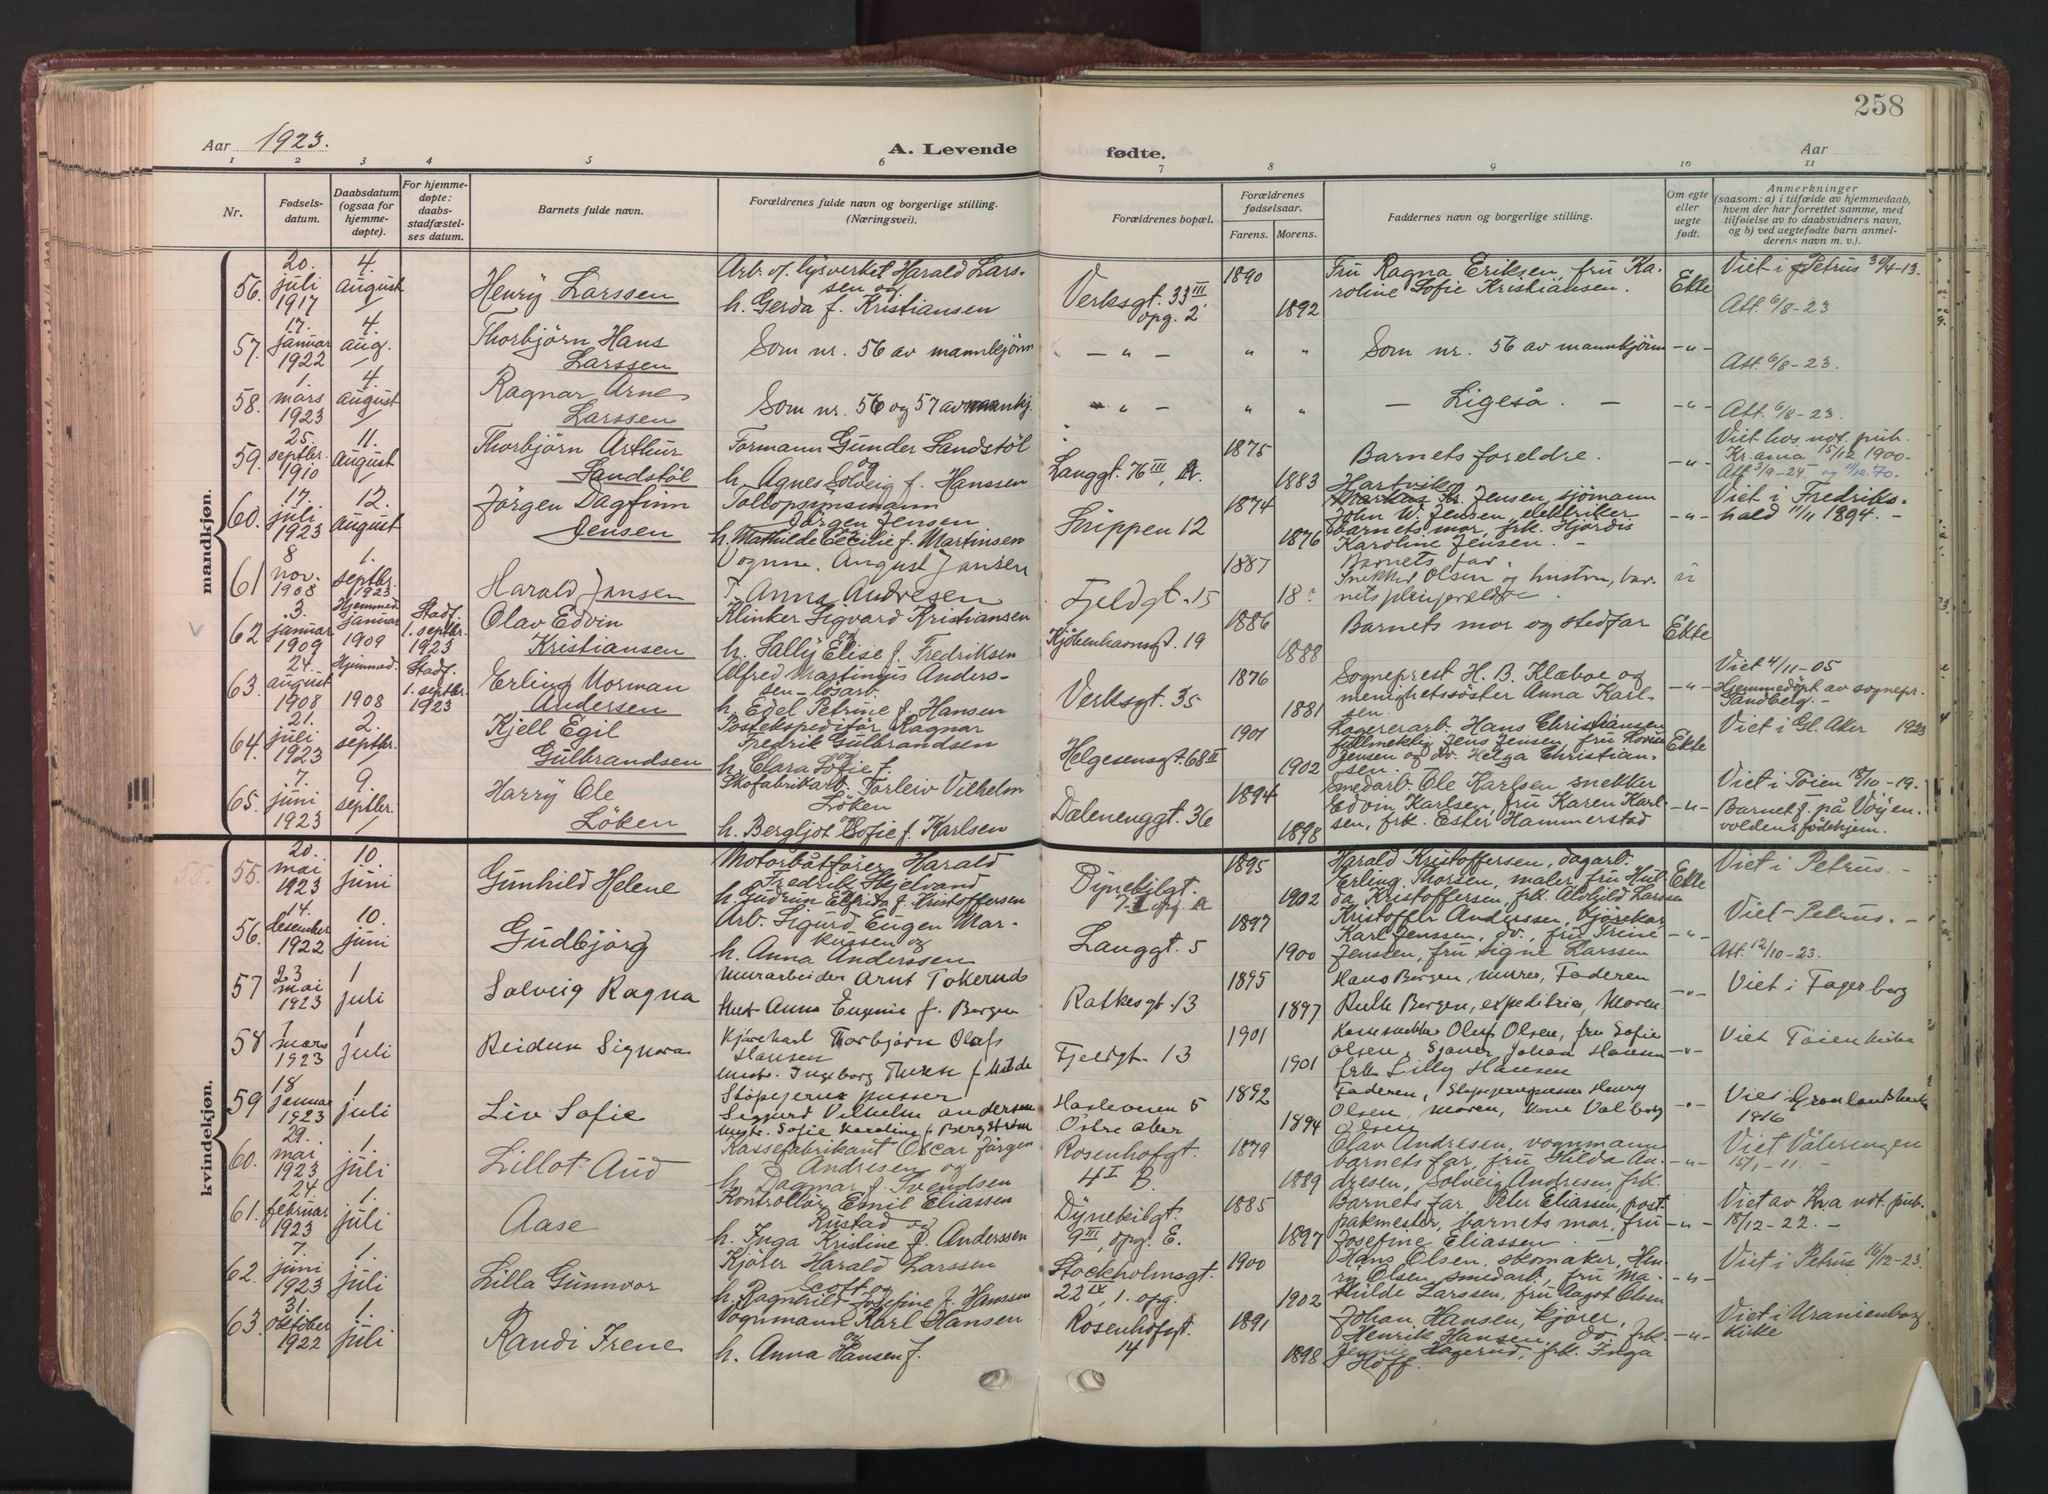 258
Aar 1923. A. Levende fødte. Aar
1 2 3 4 5 6 7 8 9 10 11
Nr.
Fødsels-
datum.
Daabsdatum
(ogsaa for
hjemme-
døpte).
For hjemme-
døpte:
daabs-
stadfæstel-
ses datum.
Barnets fulde navn.
Forældrenes fulde navn og borgerlige stilling.
(Næringsvei).
Forældrenes bopæl.
Forældrenes
fødselsaar.
Farens. Morens.
Faddernes navn og borgerlige stilling.
Om egte
eller
uegte
født.
Anmerkninger
(saasom: a) i tilfælde av hjemmedaab,
hvem der har forrettet samme, med
tilføielse av to daabsvidners navn,
og b) ved uegtefødte barn anmel-
derens navn m. v.).
mandkjøn.
56. 20. juli 1917 4. august
Henry Larssen
Arb. v. lysverket Harald Lars-
sen og
h. Gerda f. Kristiansen
Verksgt. 33 III
opg. 2
1890 1892
Fru Ragna Eriksen, fru Ka-
roline Sofie Kristiansen.
Ekte
Viet i Petrus 30/4-13.
Att. 6/8-23
57. 17. januar 1922 4. aug.
Thorbjörn Hans
Larssen
Som nr. 56 av mannkjönn
— " — " "
Som nr. 56 av mannkjönn
-"-
Att. 6/8-23.
58. 1. mars 1923 4. august
Ragnar Arne
Larssen
Som nr. 56 og 57 av mannkj.
" — " "
— Ligeså. —
-"-
Att. 6/8-23
59. 25. septbr. 1910 11. august
Thorbjörn Arthur
Sandstöl
Formann Gunder Sandstöl
og
h. Agnes Solveig f. Hanssen
Langgt. 76 III, A.
1875 1883
Barnets foreldre.
-"-
Viet hos not. pub.
Kr.ania 15/12 1900.
Att. 3/9-24 og 11/12.70.
60. 17. juli 1923 12. august
Jörgen Dagfinn
Jensen
Tollopsynsmann
Jörgen Jensen
h. Mathilde Cecilie f. Martinsen
Snippen 12
1874 1876
Hartvik
Jensen, sjömann
John W. Jensen, elektriker
barnets mor, frk. Hjördis
Karoline Jensen. -
-"-
Viet i Fredriks-
hald 11/11 1894. -
61 8 nov. 1908 1. septbr. 1923
Harald Jansen
Vognm. August Jansen
T. Anna Andresen
Fjeldgt. 15
1887 18
Barnets far,
Snekker Olsen og hustru, bar-
nets pleieforeldre.
62 3. januar 1909 Hjemmed. januar 1909 Stadf. 1. septbr. 1923
Olav Edvin
Kristiansen
Klinker Sigvard Kristiansen
og
h. Sally Elise f. Fredriksen
Kjöbenhavnsgt. 19
1886 1888
Barnets mor og stedfar
Ekte
63. 24. august 1908 Hjemmed. 1908 Stadf. 1. septbr. 1923
Erling Norman
Andersen
Alfred Martinius Anders-
sen - lösarb.
h. Edel Petrine f. Hansen
Verksgt. 35
1876 1881
Sogneprest H. B. Klæboe og
menighetssöster Anna Karl-
sen.
-"-
Viet 4/11-05
Hjemmedöpt av sognepr.
Sandberg. -
64. 21. juli 1923 2. septbr.
Kjell Egil
Gulbrandsen
Postekspeditör Ragnar
Fredrik Gulbrandsen
og
h. Clara Sofie f.
Helgesensgt. 68 II
1901 1902
Lagerarb. Hans Christiansen
fullmektig Jens Jensen, fru
Jensen og do. Helga Christian-
sen.
Ekte
Viet i Gl. Aker 1923
65. 7. juni 1923 9. septbr.
Harry Ole
Löken
Skofabrikarb. Torleiv Vilhelm
Löken
og
h. Bergljot Sofie f. Karlsen
Dælenenggt. 36
1894 1898
Smedarb. Ole Karlsen, snekker
Edvin Karlsen, fru Karen Karl-
sen, frk. Ester Hammerstad
-"-
Viet i Töien 18/10-19.
Barnet f. på Vöyen-
voldens födehjem.
kvindekjøn.
55. 20. mai 1923 10. juni
Gunhild Helene
Motorbåtförer Harald
Fredrik Skjelvand
h. Gudrun Elfrida f. Kristoffersen
Dynekilgt.
7 I opg. A
1895 1902
Harald Kristoffersen, dagarb.
Erling Thorsen, maler, fru Hul-
da Kristoffersen, frk. Aldhild Larssen
Ekte
Viet i Petrus. -
56. 14. desember 1922 10. juni
Gudbjörg
Arb. Sigurd Eugen Mar-
kussen og
h. Anna Anderssen
Langgt. 5
1897 1900
Kristoffer Anderssen, kjörekar,
Karl Jenssen, do., fru Trine
Jensten, fru Signe Larssen
-"-
Viet - Petrus. -
Att. 12/10-23.
57 23 mai 1923 1 juli
Solveig Ragna
Murarbeider Arnt Tokerud
Hust. Anna Eugenie f. Bergen
Ratkesgt. 13
1895 1897
Hans Bergen, murer, Faderen
Ruth Bergen, expeditrice, Moren
-"-
Viet i Fagerborg
58 7 mars 1923 1 juli
Reidun Signora
Kjörekarl Thorbjörn Olaf
Hansen
Hustr. Ingeborg
Fjeldgt. 13
1901 1901
Olaf Olsen, fru Sofie
Olsen, Johan Hansen
frk. Lilly Hansen
-"-
Viet Töien kirke
59 18 januar 1923 1. juli
Liv Sofie
Stöpejernspusser
Sigurd Vilhelm Andersen
Hustr. Sofie Karoline f. Bergström
Hasleveien 5
Östre Aker
1892 1894
Faderen, Stöpejernspusser Henry
Olsen, Moren, Kone Valborg
Olsen
-"-
Viet i Grönlands kirke
1916
60. 29. mai 1923 1. juli
Lillot Aud
Kassefabrikant Oscar Jörgen
Andresen og
h. Dagmar f. Svendsen
Rosenhofgt.
4 I B.
1879 1889
Olav Andresen, vognmann
barnets far, fru Hilda An-
dresen, Solveig Andresen, frk.
-"-
Viet Vålerengen
15/1-11. -
61. 24 februar 1923 1. juli
Aase
Kontrollör Emil Eliassen
Rustad og
h. Inga Kristine f. Anderssen
Dynekilgt.
9 III, opg. E.
1885 1897
Barnets far, Peter Eliassen, post-
pakmester, barnets mor, fru
Josefine Eliassen. -
-"-
Viet av Kra not. pub.
18/12-22. -
62. 7. juni 1923 1. juli
Lilla Gunnvor
Kjörer Harald Larssen
Scott og
h. Ragnhild Josefine f. Hanssen
Stockholmsgt.
22 IV, 1. opg.
1900 1902
Hans Olsen, skomaker, Hen-
ry Olsen, smedarb., fru Ma-
thilde Larssen, fru Aagot Olsen
-"-
Viet i Petrus 16/12-23.
63. 31. oktober 1922 1. juli
Randi Irene
Vognmann Karl Hansen
og
h. Anna Hansen f.
Rosenhofgt.
14
1891 1898
Johan Hansen, kjörer,
Henrik Hansen, do. frk.
Jennie Hagerud, frk. Inga
Hoff.
-"-
Viet i Uranienborg
kirke